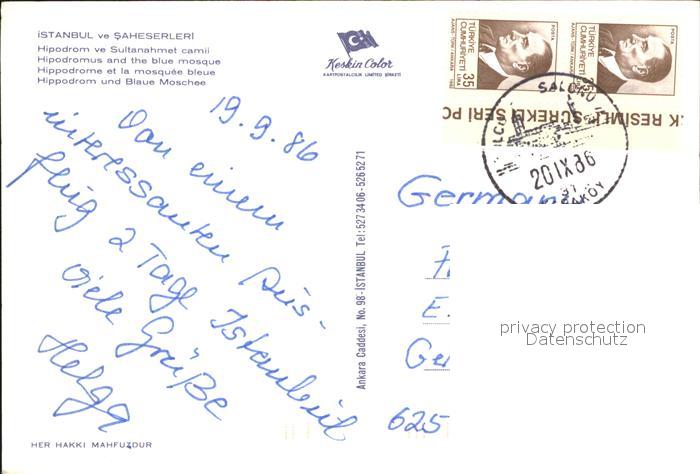 İSTANBUL ve ŞAHESERLERİ
Hipodrom ve Sultanahmet camii
Hipodromus and the blue mosque
Hippodrome et la mosquée bleue
Hippodrom und Blaue Moschee
Keskin Color
KARTPOSTALCILIK LİMİTED ŞİRKETİ
POSTA
TÜRKİYE CUMHURİYETİ
35 LİRA
POSTA
TÜRKİYE CUMHURİYETİ
K RESİMLİ SÜREKLİ SERİ PO
SALONU
20 IX 86
19.9.86
Von einem
interessanten Aus-
flug 2 Tage Istanbul
viele Grüße
Helga
Ankara Caddesi, No. 98-İSTANBUL Tel: 527 34 06-526 52 71
German
E.
Ge
625
privacy protection
Datenschutz
HER HAKKI MAHFUZDUR